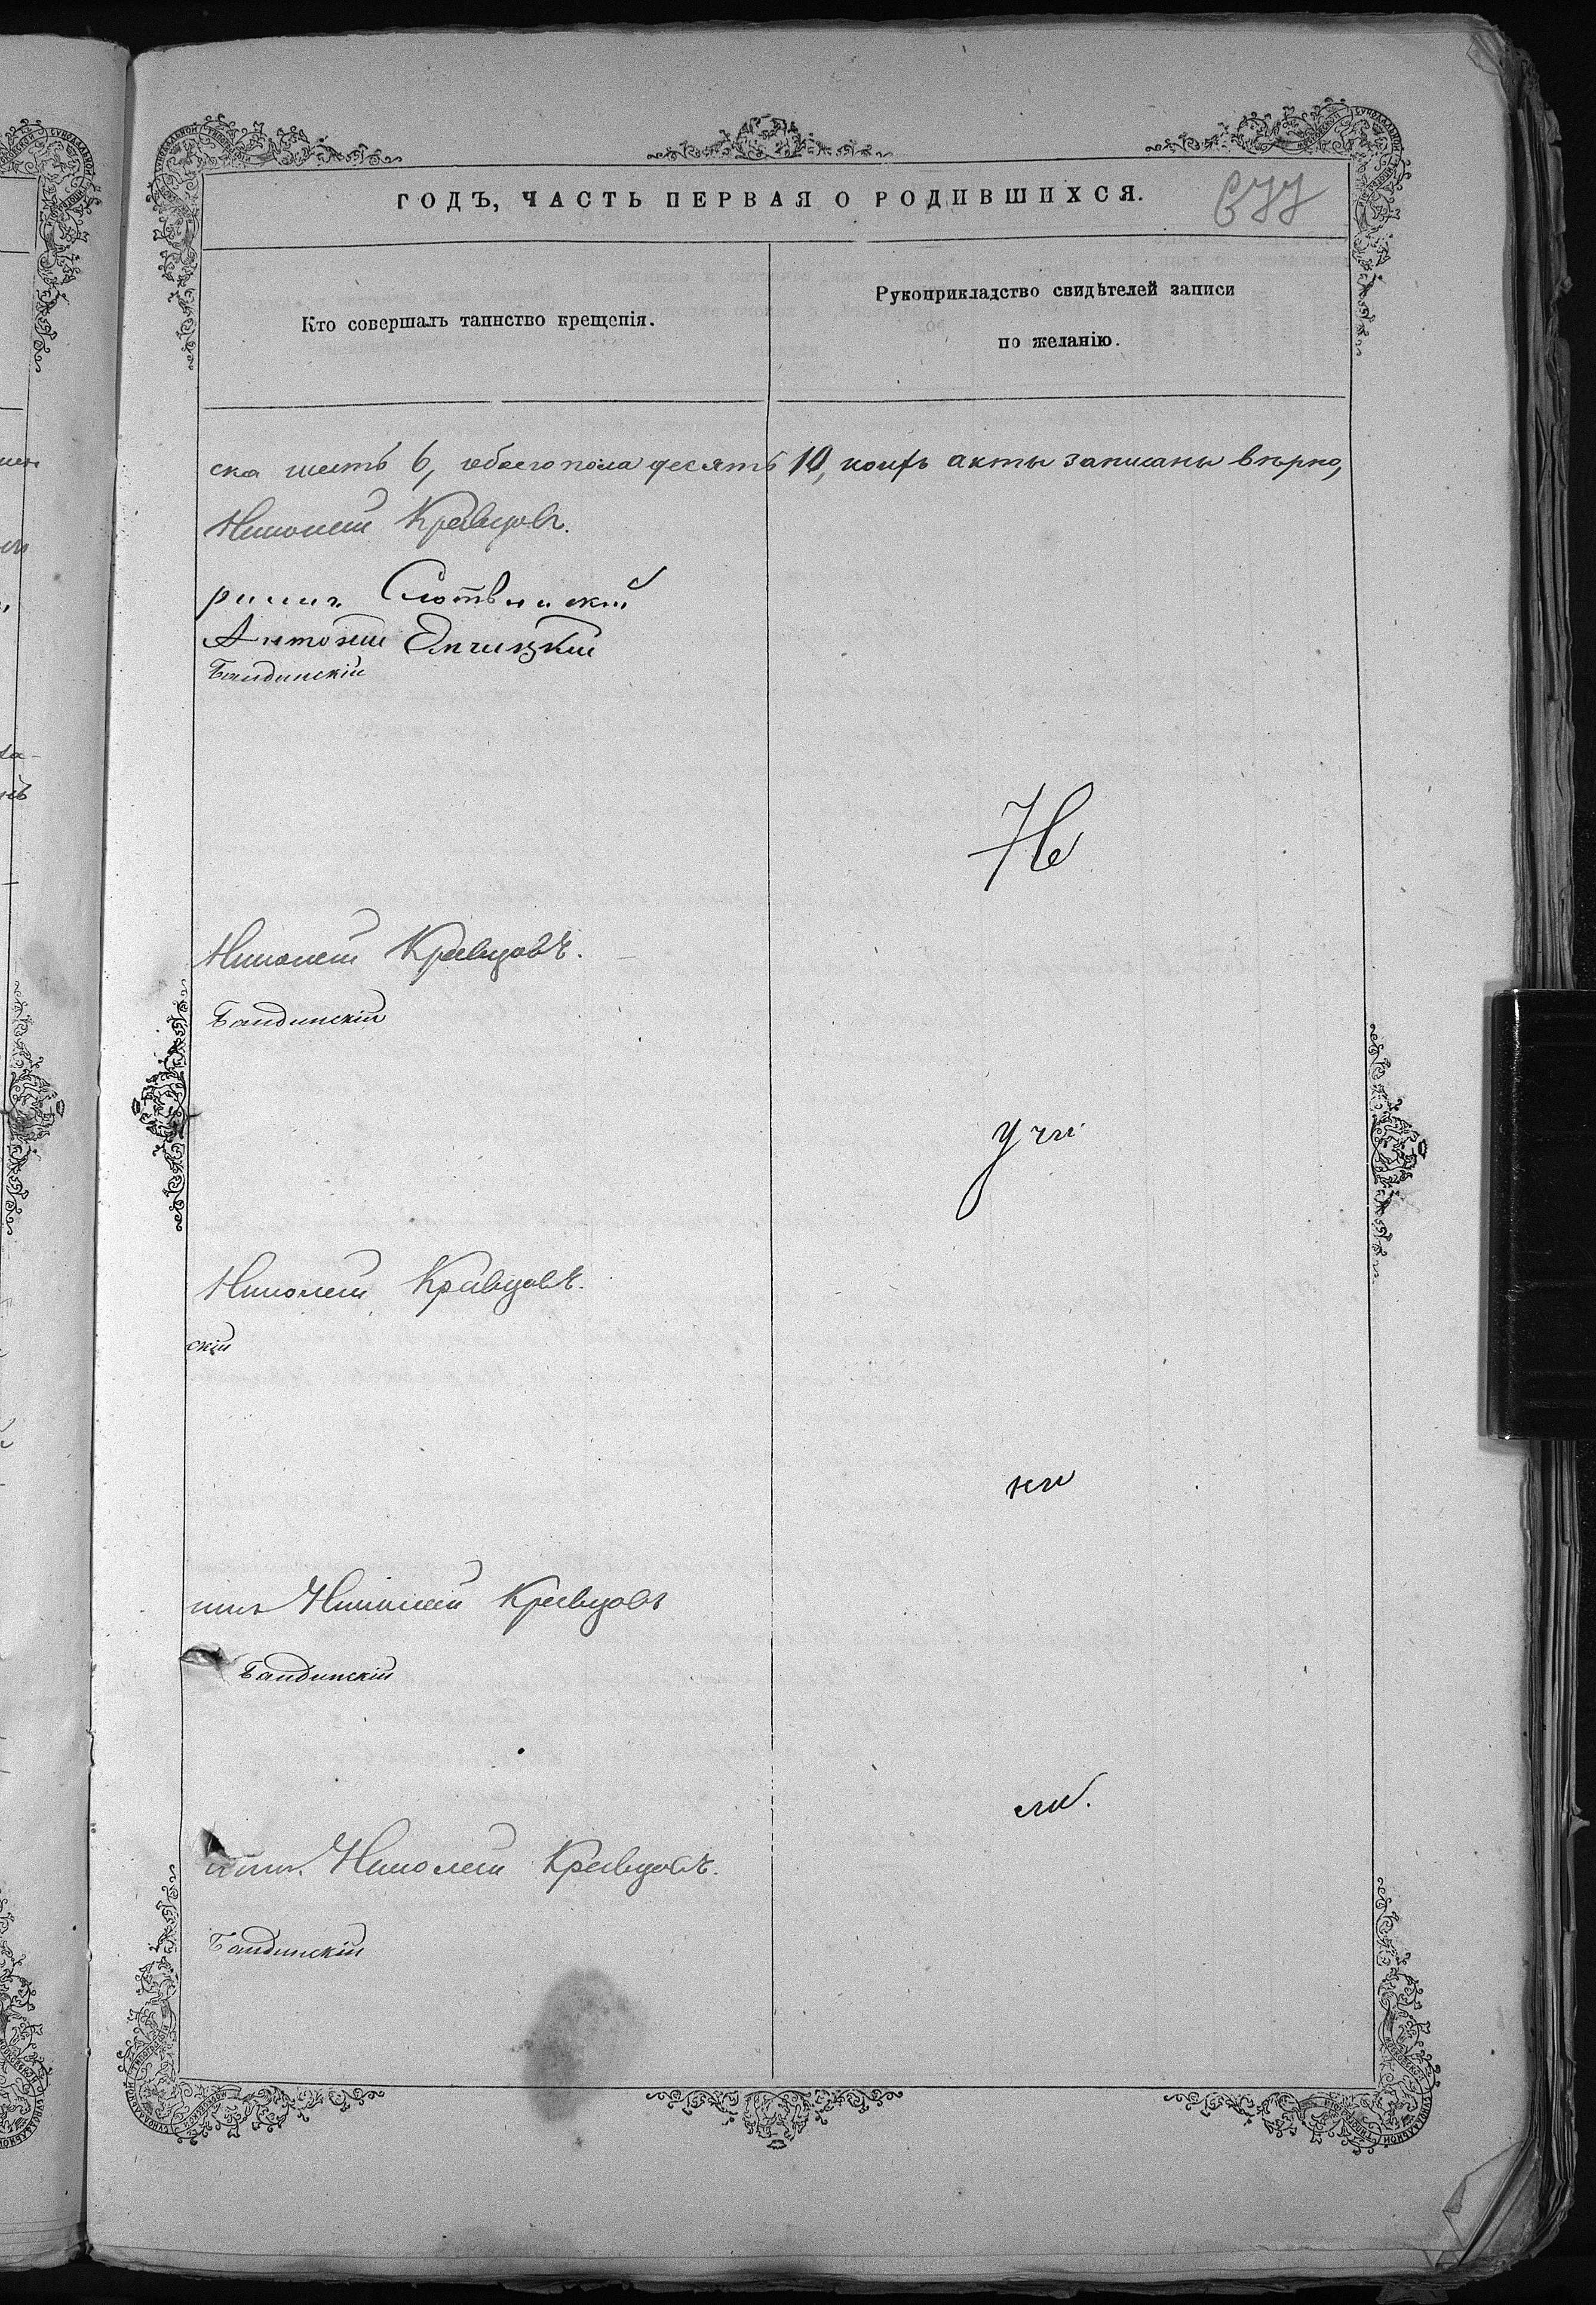 ГОДЪ, ЧАСТЬ ПЕРВАЯ О РОДИВШИХСЯ.
677
Кто совершалъ таинство крещенія.
Рукоприкладство свидѣтелей записи
по желанію.
ска шесть 6, обоего пола десять 10, коихъ акты записаны вѣрно,
Николай Кравцовъ.
Слотвинскій
Антоній
Бандинскій
Не
Николай Кравцовъ.
Бандинскій
учи
Николай Кравцовъ.
скій
ни
Николай Кравцовъ
Бандинскій
ли.
Николай Кравцовъ.
Бандинскій